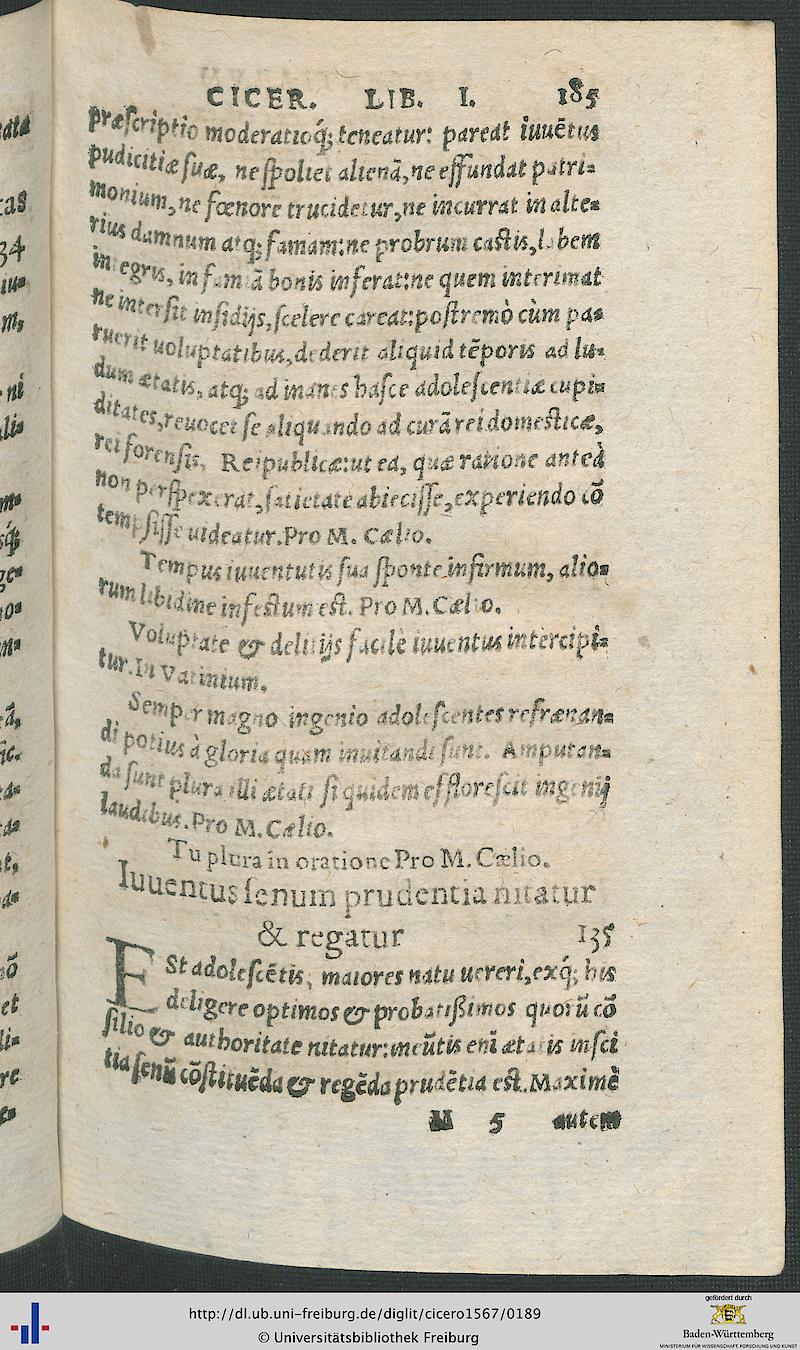 CICER. LIB. I. 185
præscriptio moderatioq́; teneatur: pareat iuuẽtus
pudicitiæ suæ, ne spoliet alienã, ne effundat patri-
monium, ne fœnore trucidetur, ne incurrat in alte-
rius damnum atq; famam: ne probrum castis, labem
integris, infamiã bonis inferat: ne quem interimat
ne intersit insidijs, scelere careat: postremò cùm pa-
ruerit uoluptatibus, dederit aliquid tẽporis ad lu-
dum ætatis, atq; ad inanes hasce adolescentiæ cupi-
ditates, reuocet se aliquando ad curã rei domesticæ,
rei forensis, Reipublicæ: ut ea, quæ ratione anteà
non perspexerat, satietate abiecisse, experiendo cõ
tempsisse uideatur. Pro M. Cælio.
Tempus iuuentutis sua sponte infirmum, alio-
rum libidine infestum est. Pro M. Cælio.
Voluptate & delitijs facilè iuuentus intercipi-
tur. In Vatinium.
Semper magno ingenio adolescentes refrænan-
di potius à gloria quam inuitandi sunt. Amputan-
da sunt plura illi ætati si quidem efflorescit ingenij
laudibus. Pro M. Cælio.
Tu plura in oratione Pro M. Cælio.
Iuuentus senum prudentia nitatur
& regatur 135
Est adolescẽtis, maiores natu uereri, exq́; his
deligere optimos & probatißimos quorũ cõ
silio & authoritate nitatur: ineũtis enĩ ætatis insci
tia senũ cõstituẽda & regẽda prudẽtia est. Maximè
M 5 autem
http://dl.ub.uni-freiburg.de/diglit/cicero1567/0189
© Universitätsbibliothek Freiburg
gefördert durch
Baden-Württemberg
MINISTERIUM FÜR WISSENSCHAFT, FORSCHUNG UND KUNST